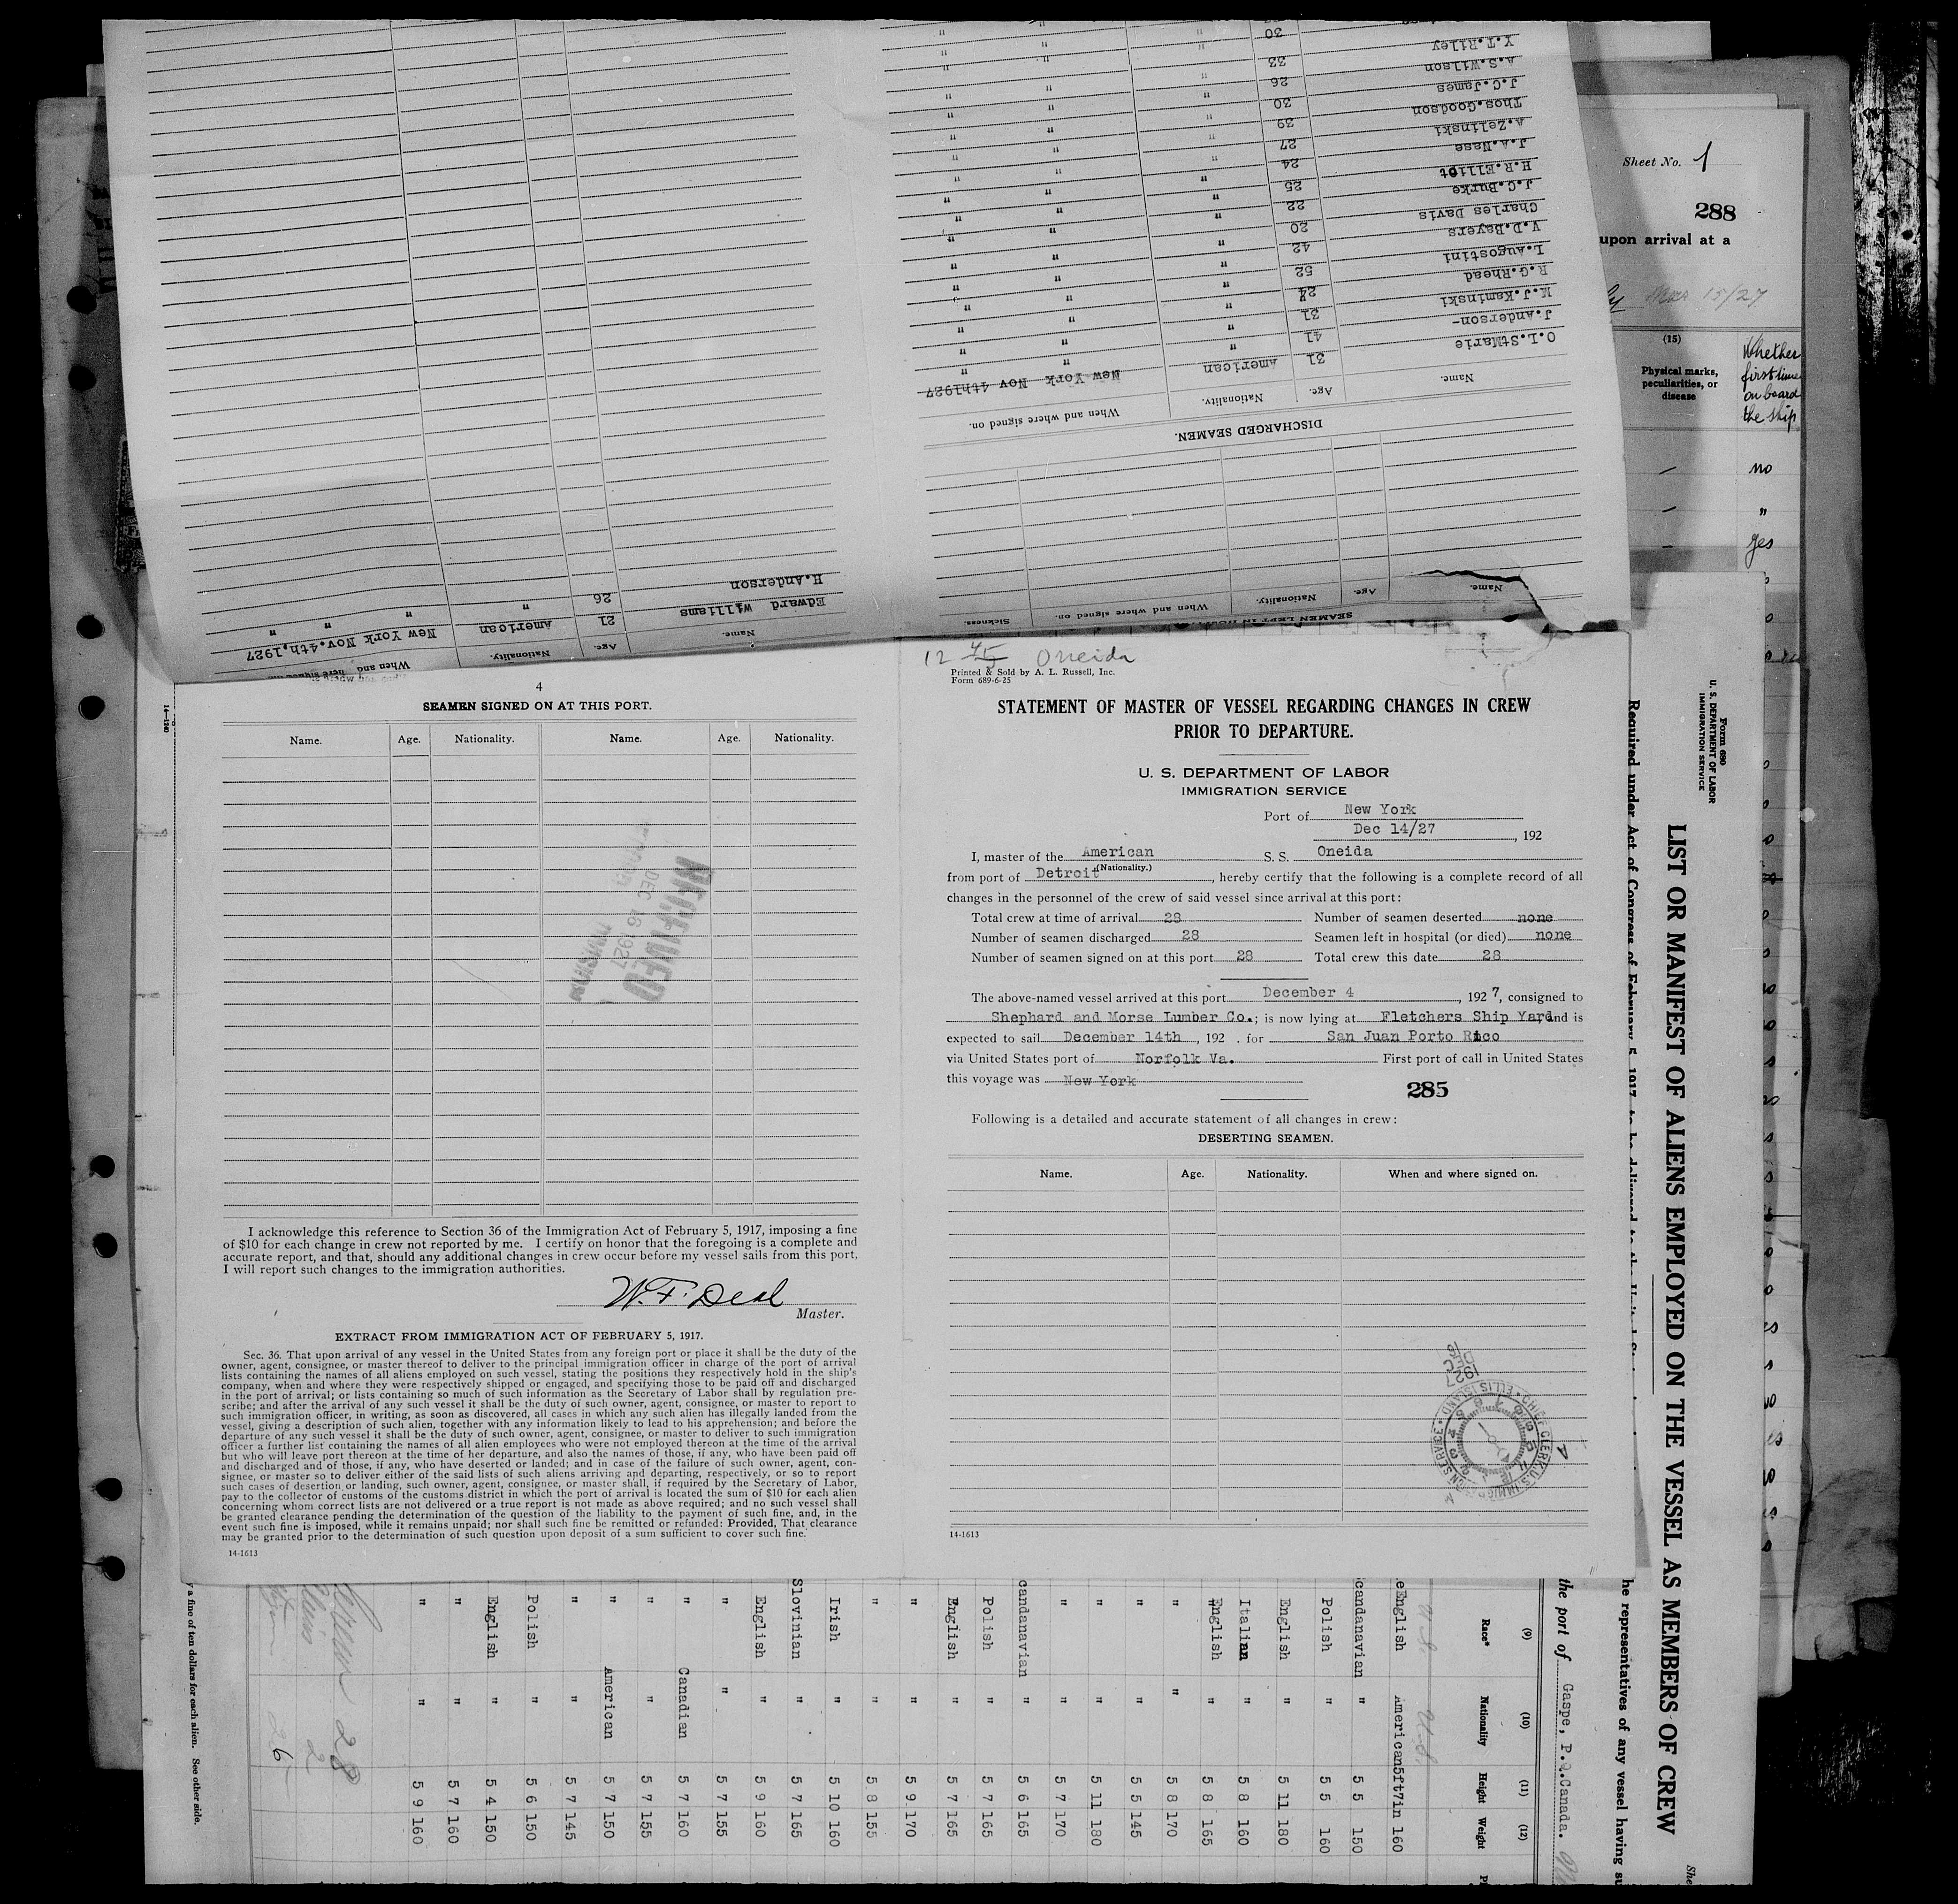 Y.T.Riley 30 " " "
A.S.Wilson 33 " " "
J.C.James 26 " " "
Thos.Goodson 30 " " "
A.Zelinski 39 " " "
J.A.Nase 27 " " "
H.R.Elliot 24 " " "
J.C.Burke 25 " " "
Charles Davis 22 " " "
V.D.Bayers 20 " " "
L.Augostini 42 " " "
R.G.Rhead 52 " " "
M.J.Kaminski 24 " " "
J.Anderson- 31 " " "
O.L.StMarie 41 " " "
31 American New York Nov 4th1927
Name. Age. Nationality. When and where signed on.
DISCHARGED SEAMEN.
Name. Age. Nationality. When and where signed on. Sickness.
SEAMEN LEFT IN
H.Anderson 26 " " "
Edward Williams 21 American New York Nov.4th,1927
Name. Age. Nationality. When and where signed on.
Sheet No. 1
288
upon arrival at a
Mar 15/27
(15)
Physical marks,
peculiarities, or
disease
Whether
first time
on board
the ship
no
"
yes
4
SEAMEN SIGNED ON AT THIS PORT.
Name. Age. Nationality. Name. Age. Nationality.
RECEIVED
DEC 16 1927
I acknowledge this reference to Section 36 of the Immigration Act of February 5, 1917, imposing a fine
of $10 for each change in crew not reported by me. I certify on honor that the foregoing is a complete and
accurate report, and that, should any additional changes in crew occur before my vessel sails from this port,
I will report such changes to the immigration authorities.
W.F. Deal
Master.
EXTRACT FROM IMMIGRATION ACT OF FEBRUARY 5, 1917.
Sec. 36. That upon arrival of any vessel in the United States from any foreign port or place it shall be the duty of the
owner, agent, consignee, or master thereof to deliver to the principal immigration officer in charge of the port of arrival
lists containing the names of all aliens employed on such vessel, stating the positions they respectively hold in the ship's
company, when and where they were respectively shipped or engaged, and specifying those to be paid off and discharged
in the port of arrival; or lists containing so much of such information as the Secretary of Labor shall by regulation pre-
scribe; and after the arrival of any such vessel it shall be the duty of such owner, agent, consignee, or master to report to
such immigration officer, in writing, as soon as discovered, all cases in which any such alien has illegally landed from the
vessel, giving a description of such alien, together with any information likely to lead to his apprehension; and before the
departure of any such vessel it shall be the duty of such owner, agent, consignee, or master to deliver to such immigration
officer a further list containing the names of all alien employees who were not employed thereon at the time of the arrival
but who will leave port thereon at the time of her departure, and also the names of those, if any, who have been paid off
and discharged and of those, if any, who have deserted or landed; and in case of the failure of such owner, agent, con-
signee, or master so to deliver either of the said lists of such aliens arriving and departing, respectively, or so to report
such cases of desertion or landing, such owner, agent, consignee, or master shall, if required by the Secretary of Labor,
pay to the collector of customs of the customs district in which the port of arrival is located the sum of $10 for each alien
concerning whom correct lists are not delivered or a true report is not made as above required; and no such vessel shall
be granted clearance pending the determination of the question of the liability to the payment of such fine, and, in the
event such fine is imposed, while it remains unpaid; nor shall such fine be remitted or refunded: Provided, That clearance
may be granted prior to the determination of such question upon deposit of a sum sufficient to cover such fine.
14-1613
12 45 Oneida
Printed & Sold by A. L. Russell, Inc.
Form 689-6-25
STATEMENT OF MASTER OF VESSEL REGARDING CHANGES IN CREW
PRIOR TO DEPARTURE.
U. S. DEPARTMENT OF LABOR
IMMIGRATION SERVICE
Port of New York
Dec 14/27, 192
I, master of the American S. S. Oneida
(Nationality.)
from port of Detroit, hereby certify that the following is a complete record of all
changes in the personnel of the crew of said vessel since arrival at this port:
Total crew at time of arrival 28 Number of seamen deserted none
Number of seamen discharged 28 Seamen left in hospital (or died) none
Number of seamen signed on at this port 28 Total crew this date 28
The above-named vessel arrived at this port December 4, 1927, consigned to
Shephard and Morse Lumber Co.; is now lying at Fletchers Ship Yard, and is
expected to sail December 14th, 192 . for San Juan Porto Rico
via United States port of Norfolk Va. First port of call in United States
this voyage was New York
285
Following is a detailed and accurate statement of all changes in crew:
DESERTING SEAMEN.
Name. Age. Nationality. When and where signed on.
1927 DEC 16
CHIEF CLERK, U.S. IMMIGRATION SERVICE ELLIS ISLAND
14-1613
Form 680
U. S. DEPARTMENT OF LABOR
IMMIGRATION SERVICE
LIST OR MANIFEST OF ALIENS EMPLOYED ON THE VESSEL AS MEMBERS OF CREW
Required under Act of Congress of February 5, 1917, to be delivered to the United
he representatives of any vessel having su
the port of Gaspe, P.Q.Canada.
(9) (10) (11) (12)
Race* Nationality Height Weight
U.S.
English American 5ft7in 160
candanavian " 5 5 150
Polish " 5 5 160
English " 5 11 180
Italian " 5 8 160
English " 5 8 165
" " 5 8 170
" 5 5 145
" 5 11 180
" " 5 7 170
candanavian " 5 6 165
Polish " 5 7 165
English " 5 7 165
" " 5 9 170
" " 5 8 155
Irish " 5 10 160
Slovinian " 5 7 165
English " 5 9 160
" " 5 7 155
" Canadian 5 7 160
" " 5 7 155
" American 5 7 150
" " 5 7 145
Polish " 5 6 150
English " 5 4 150
" " 5 7 160
" " 5 9 160
Crew 28
Aliens 2
26
y a fine of ten dollars for each alien. See other side.